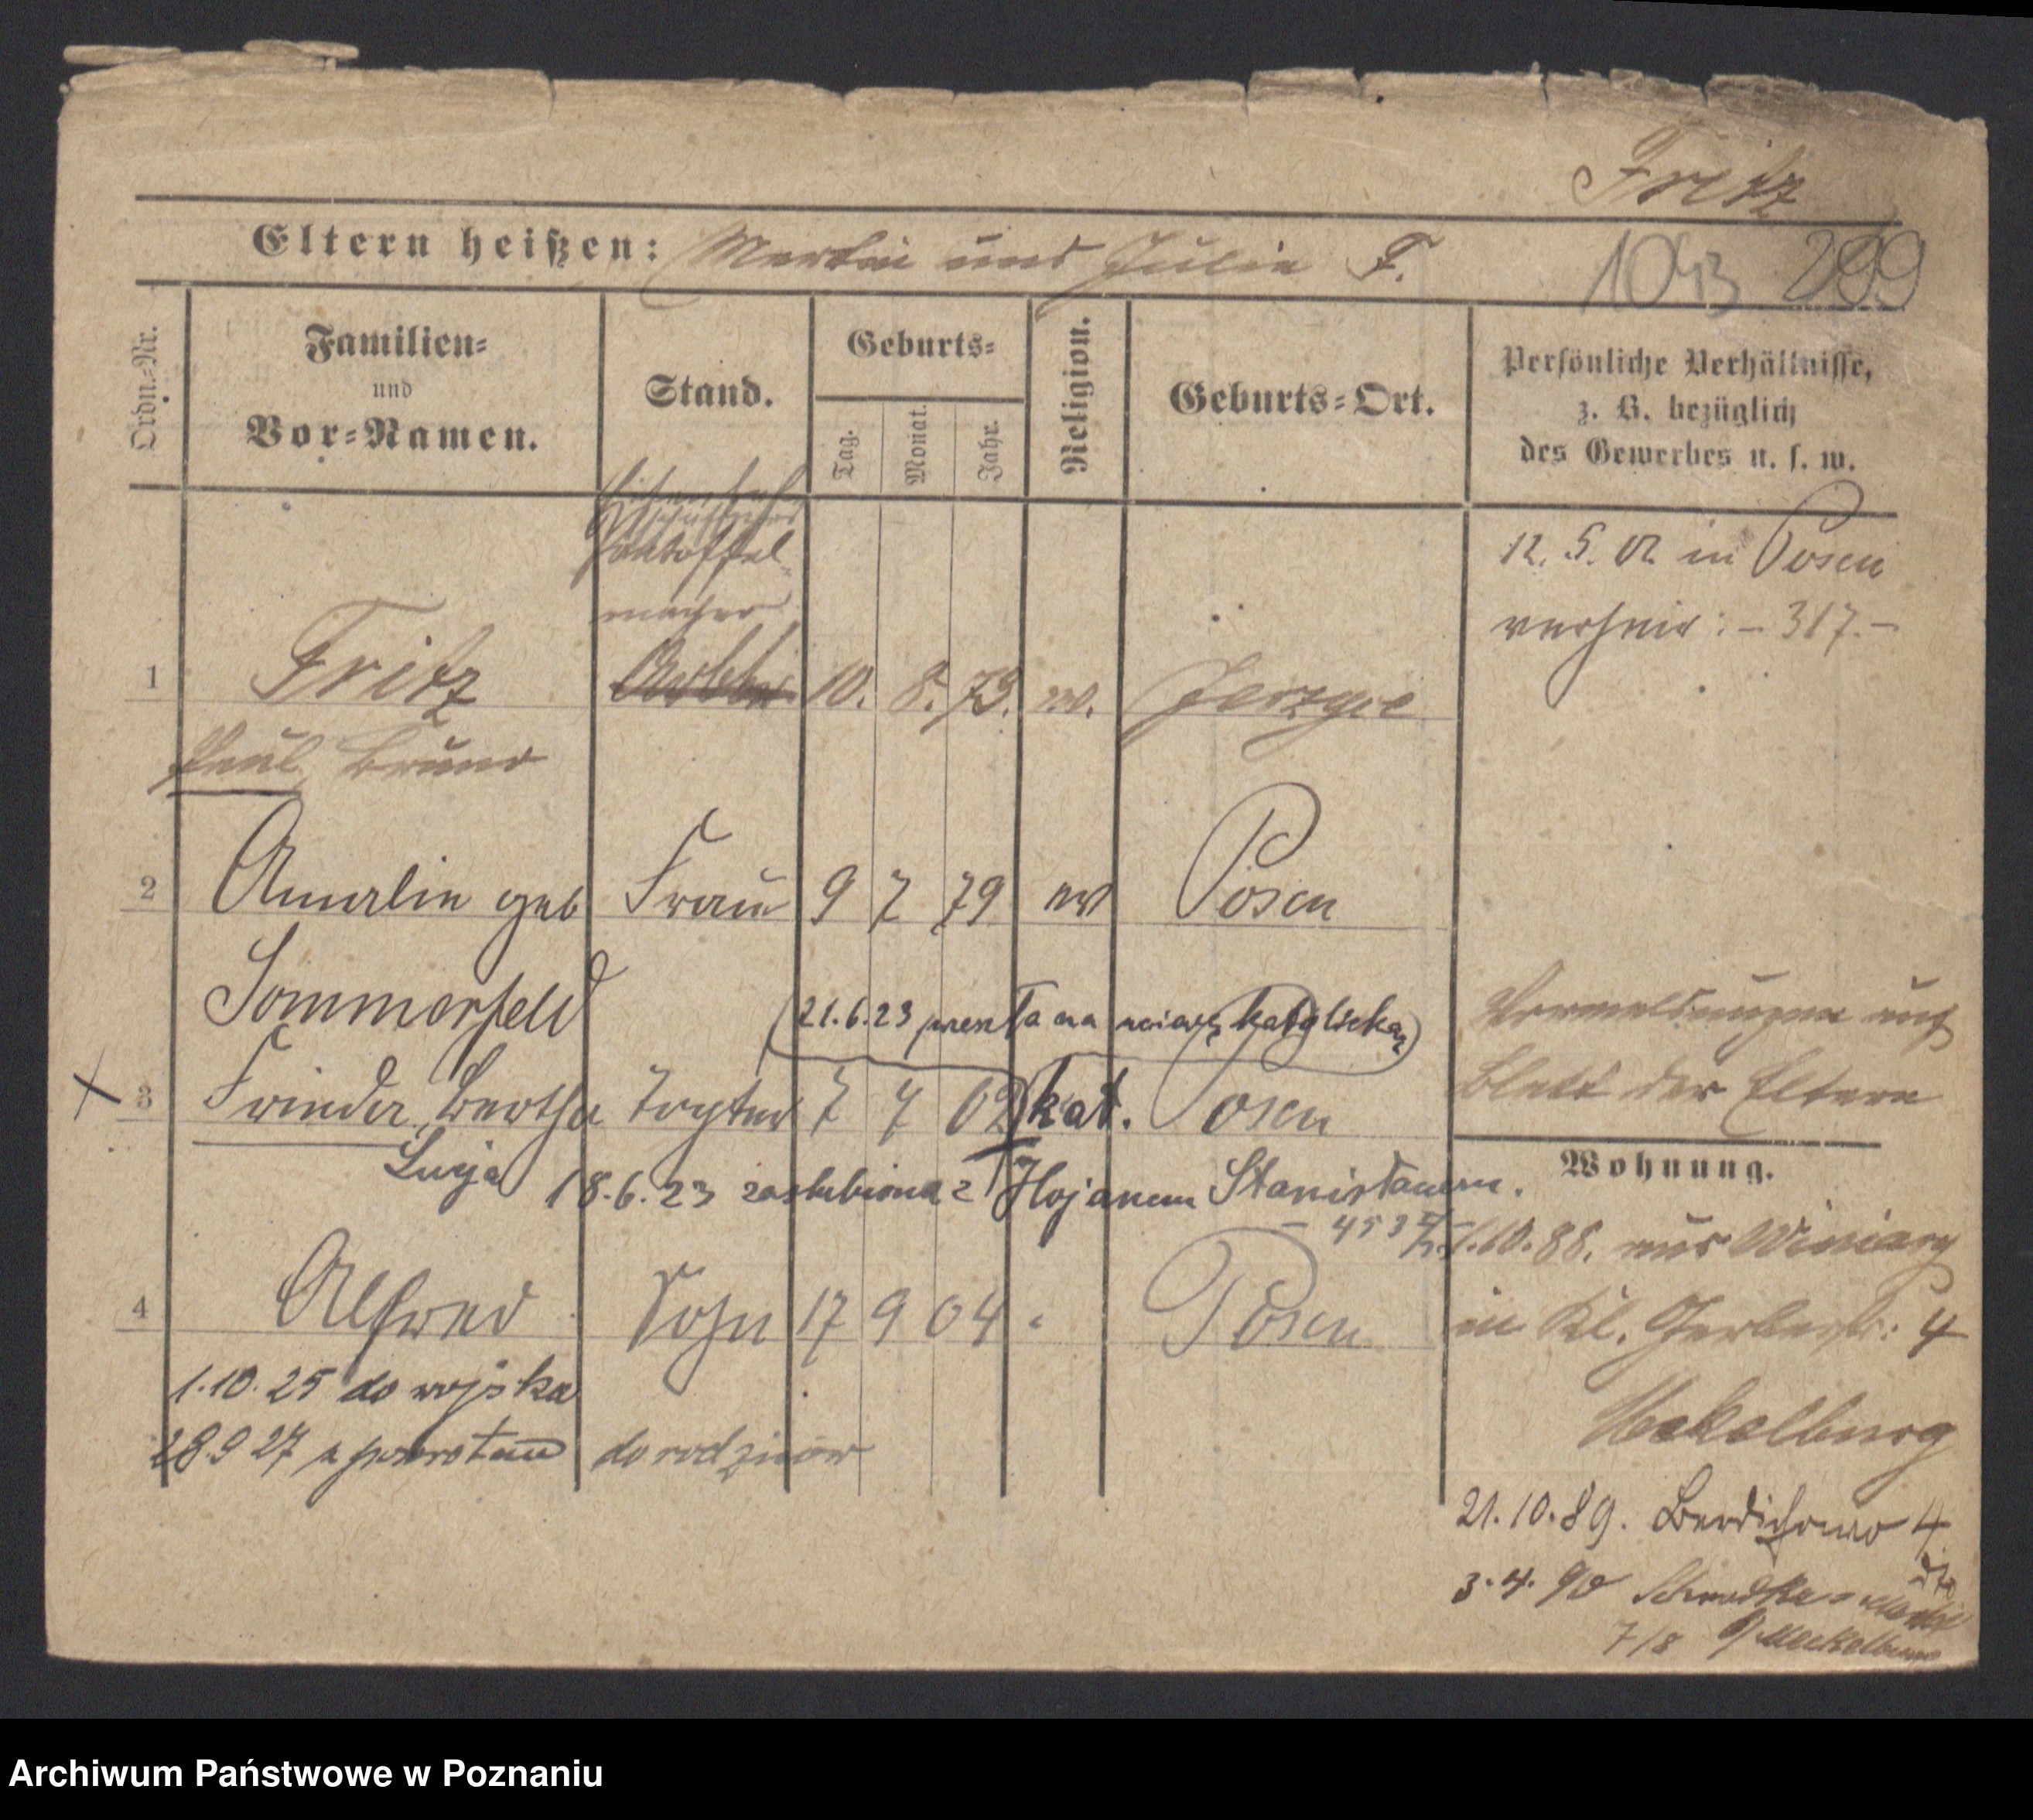 Fritz
Eltern heißen: Martin und Julie F.
1043 299
Ordn.-Nr.
Familien-
und
Vor-Namen.
Stand.
Geburts-
Tag.
Monat.
Jahr.
Religion.
Geburts-Ort.
Persönliche Verhältnisse,
z. B. bezüglich
des Gewerbes u. s. w.
Pantoffel-
macher
12. 5. 02 in Posen
verheir: - 317.-
1 Fritz Arbeiter 10. 8. 73. ev. Jerzyce
Paul Bruno
2 Amalie geb Frau 9 7 79 ev Posen
Sommerfeld
(21.6.23 przeszła na wiarę katolicką)
Vormeldungen auf
Blatt der Eltern
3 Frieda, Bertha Tochter 7 7 02 kat. Posen
Lucja
18.6.23 zaślubiona z Hojanem Stanisławem.
- 453
Wohnung.
1.10.88. aus Winiary
in Kl. Gerberstr: 4
Mekelburg
4 Alfred Sohn 17 9 04 Posen
1.10.25 do wojska
28.9 27 z powrotem do rodziców
21.10.89. Berdichowo 4
3.4.90 Schrodka
7/8 Meckelburg
Archiwum Państwowe w Poznaniu